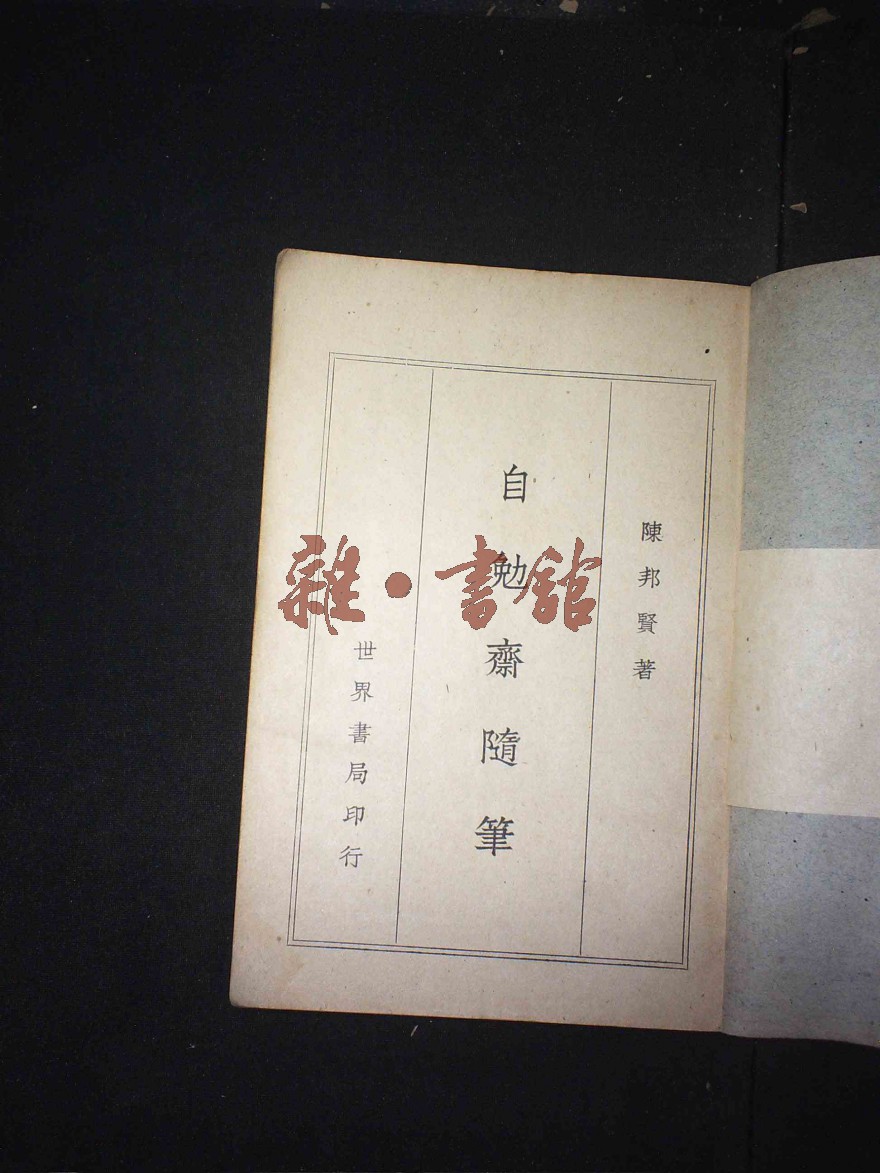 陳邦賢著
自勉齋隨筆
世界書局印行
雜·書館